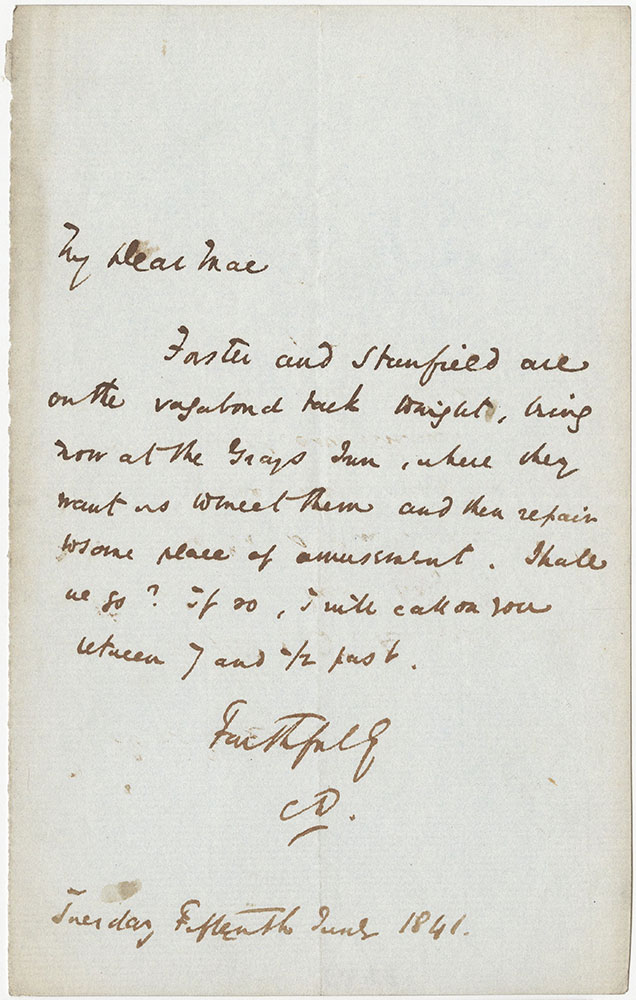 My Dear Mac
Forster and Stanfield are
on the vagabond tack tonight, being
now at the Grays Inn, where they
want us to meet them and then repair
to some place of amusement. Shall
we go? If so, I will call on you
between 7 and 1/2 past.
Faithfully
CD.
Tuesday Fifteenth June 1841.